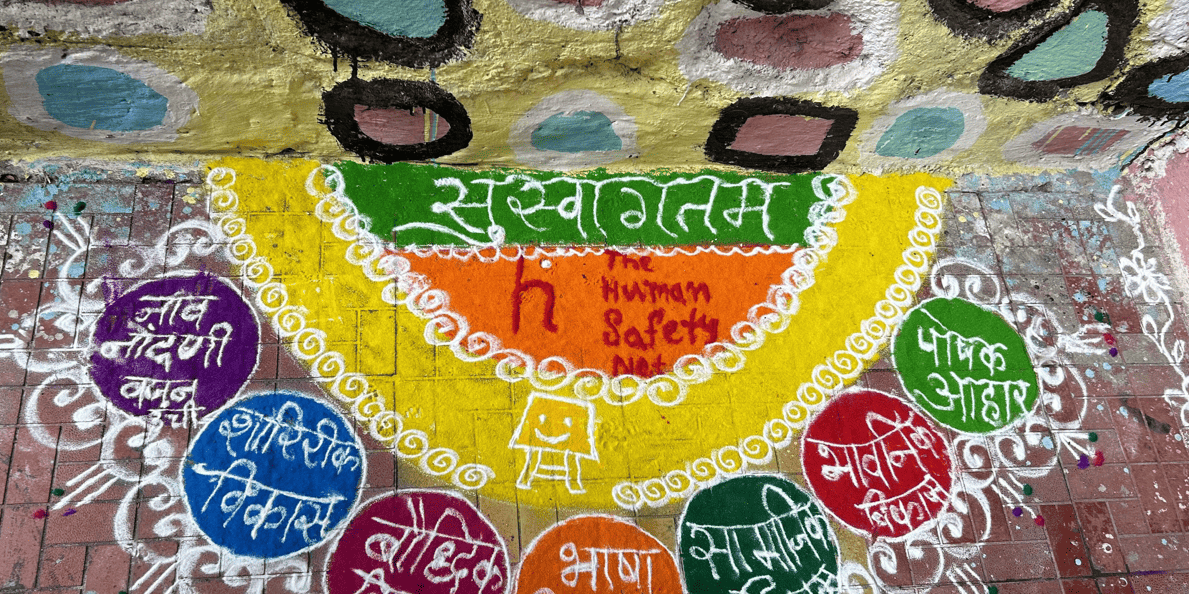 सुस्वागतम
h
The
Human
Safety
Net
नाव
नोंदणी
वमन
ऊंची
शारिरीक
विकास
बौध्दिक
भाषा
सामाजिक
भावनिक
विकास
पोषक
आहार